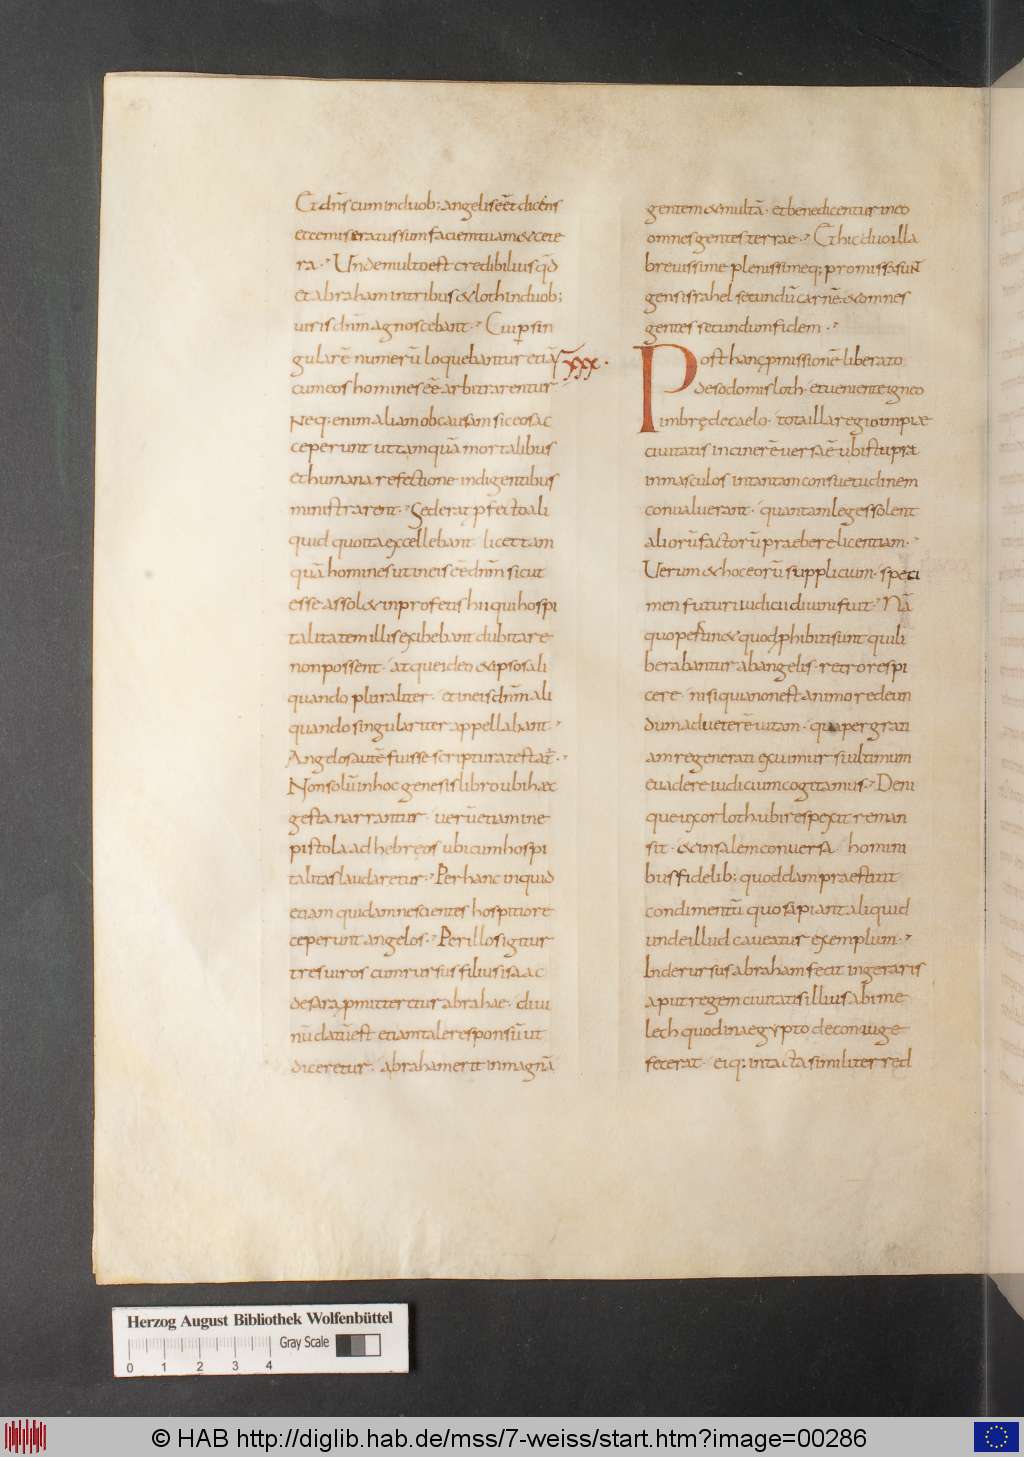 Et dn̄s cum in duob; angelis eēt dicens
ecce miseratus sum faciem tuam & cete
ra. Unde multo est credibilius qd̄
et abraham in tribus & loth in duob;
uiris dn̄m agnoscebant. Cui per sin
gularē numerū loquebantur etiā
cum eos homines eē arbitrarentur
Neq; enim aliam ob causam sic eos ac
ceperunt ut tamquā mortalibus
et humana refectione indigentibus
ministrarent. Sed erat pfecto ali
quid quo ita excellebant licet tam
quā homines ut in eis eēt dn̄m sicut
esse assol& in profetis hii qui hospi
talitatem illis exibebant dubitare
non possent. atque ideo & ipsos ali
quando pluraliter. et in eis dn̄m ali
quando singulariter appellabant.
Angelos autē fuisse scriptura testat̄.
Non solū in hoc genesis libro ubi haec
gesta narrantur. uerū etiam in e
pistola ad hebręos ubi cum hospi
talitas laudaretur. Per hanc inquid
etiam quidam nescientes hospitio re
ceperunt angelos. Per illos igitur
tres uiros cum rursus filius isaac
de sara pmitteretur abrahae. diui
nū datū est etiam tale responsū ut
diceretur. abraham erit in magnā
gentem & multā. et benedicentur in eo
omnes gentes terrae. Et hic duo illa
breuissime plenissimeq; promissa sun̄
gens israhel secundū carnē & omnes
gentes secundum fidem.
XXX.
Post hanc pmissionē liberato
de sodomis loth. et ueniente igneo
imbrę de caelo. tota illa regio impiae
ciuitatis in cinerē uersa ē ubi stupra
in masculos in tantam consuetudinem
conualuerant. quantam leges solent
aliorū factorū praebere licentiam.
Uerum & hoc eorū supplicium. speci
men futuri iudicii diuini fuit. Nā
quo pertin& quod phibiti sunt qui li
berabantur ab angelis. retro respi
cere. nisi quia non est animo redeun
dum ad ueterē uitam. qua per grati
am regenerati exuimur si ultimum
euadere iudicium cogitamus. Deni
que uxor loth ubi respexit reman
sit. & in salem conuersa. homini
bus fidelib; quoddam praestitit
condimentū quo sapiant aliquid
unde illud caueatur exemplum.
Inde rursus abraham fecit in geraris
aput regem ciuitatis illius abime
lech quod in aegypto de coniuge
fecerat. eiq; intacta similiter red
Herzog August Bibliothek Wolfenbüttel
Gray Scale
0 1 2 3 4
© HAB http://diglib.hab.de/mss/7-weiss/start.htm?image=00286